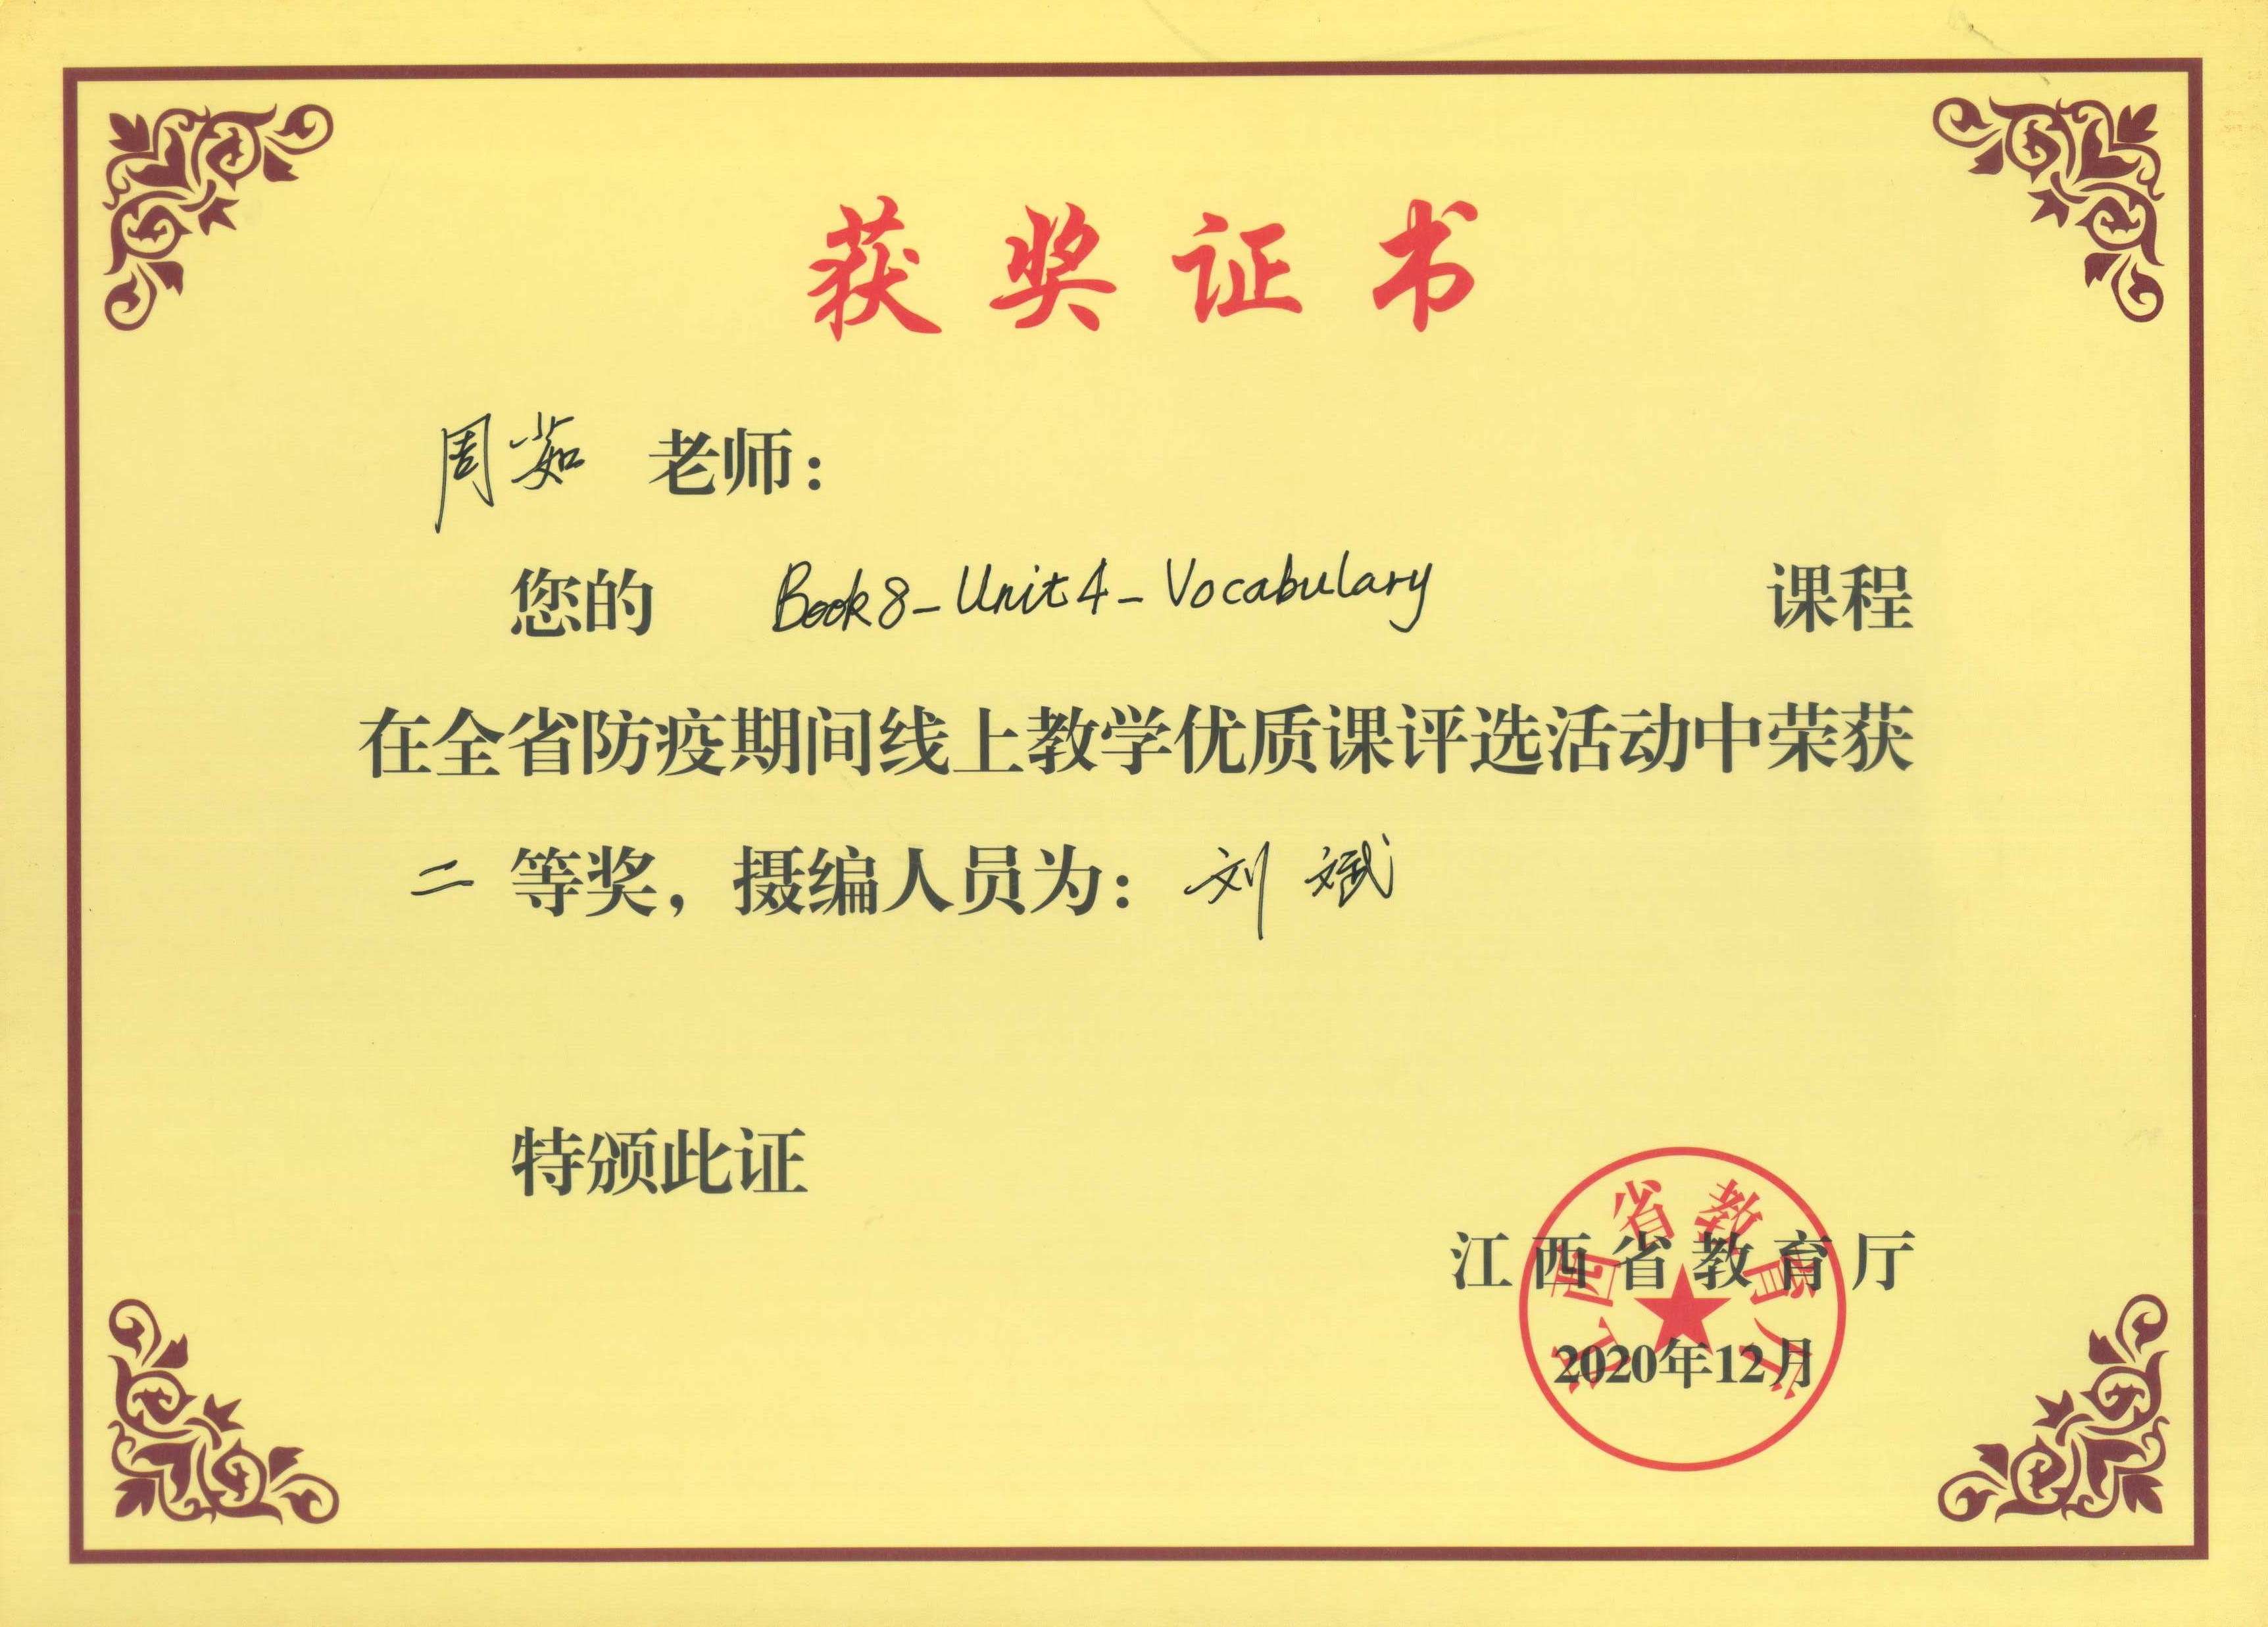 获奖证书
周茹 老师：
您的 Book8-Unit4-Vocabulary 课程
在全省防疫期间线上教学优质课评选活动中荣获
二等奖，摄编人员为：刘斌
特颁此证
江西省教育厅
江西省教育厅
2020年12月